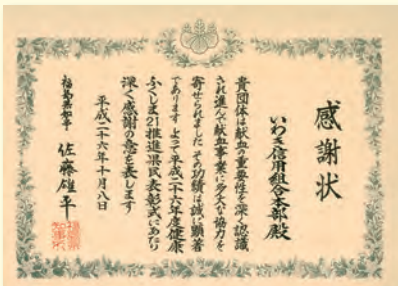 感謝状
いわき信用組合本部殿
貴団体は献血の重要性を深く認識
され進んで献血事業に多大な協力を
寄せられました その功績は誠に顕著
であります よって平成二十六年度健康
ふくしま21推進県民表彰式にあたり
深く感謝の意を表します
平成二十六年十月八日
福島県知事 佐藤雄平